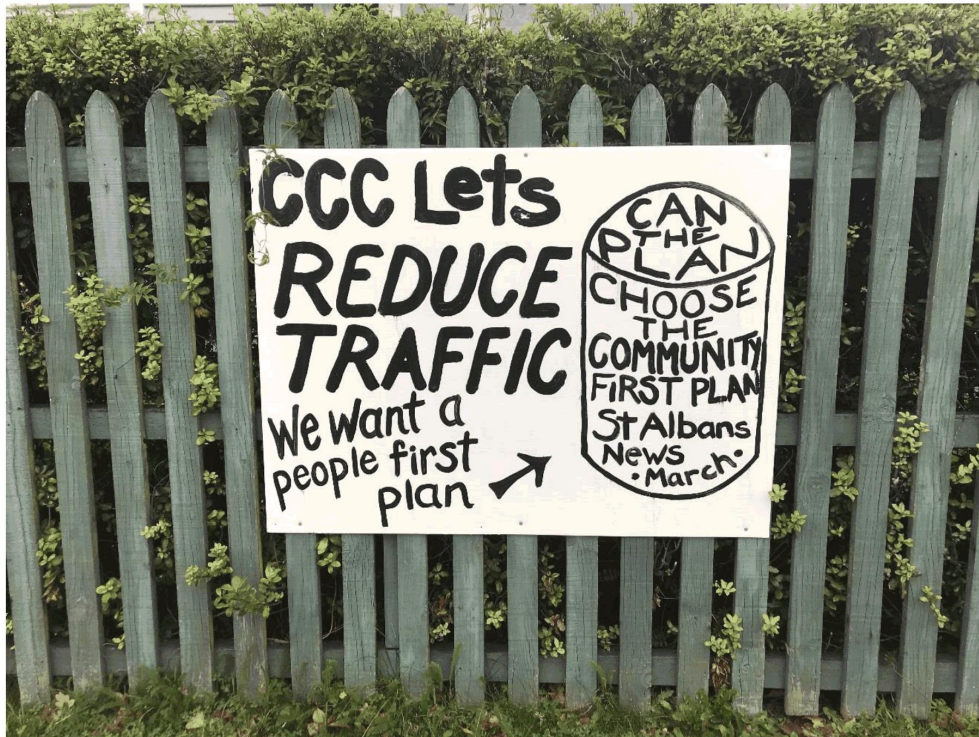 CCC Lets
REDUCE
TRAFFIC
We want a
people first
plan
CAN
THE
PLAN
CHOOSE
THE
COMMUNITY
FIRST PLAN
St Albans
News
•March•